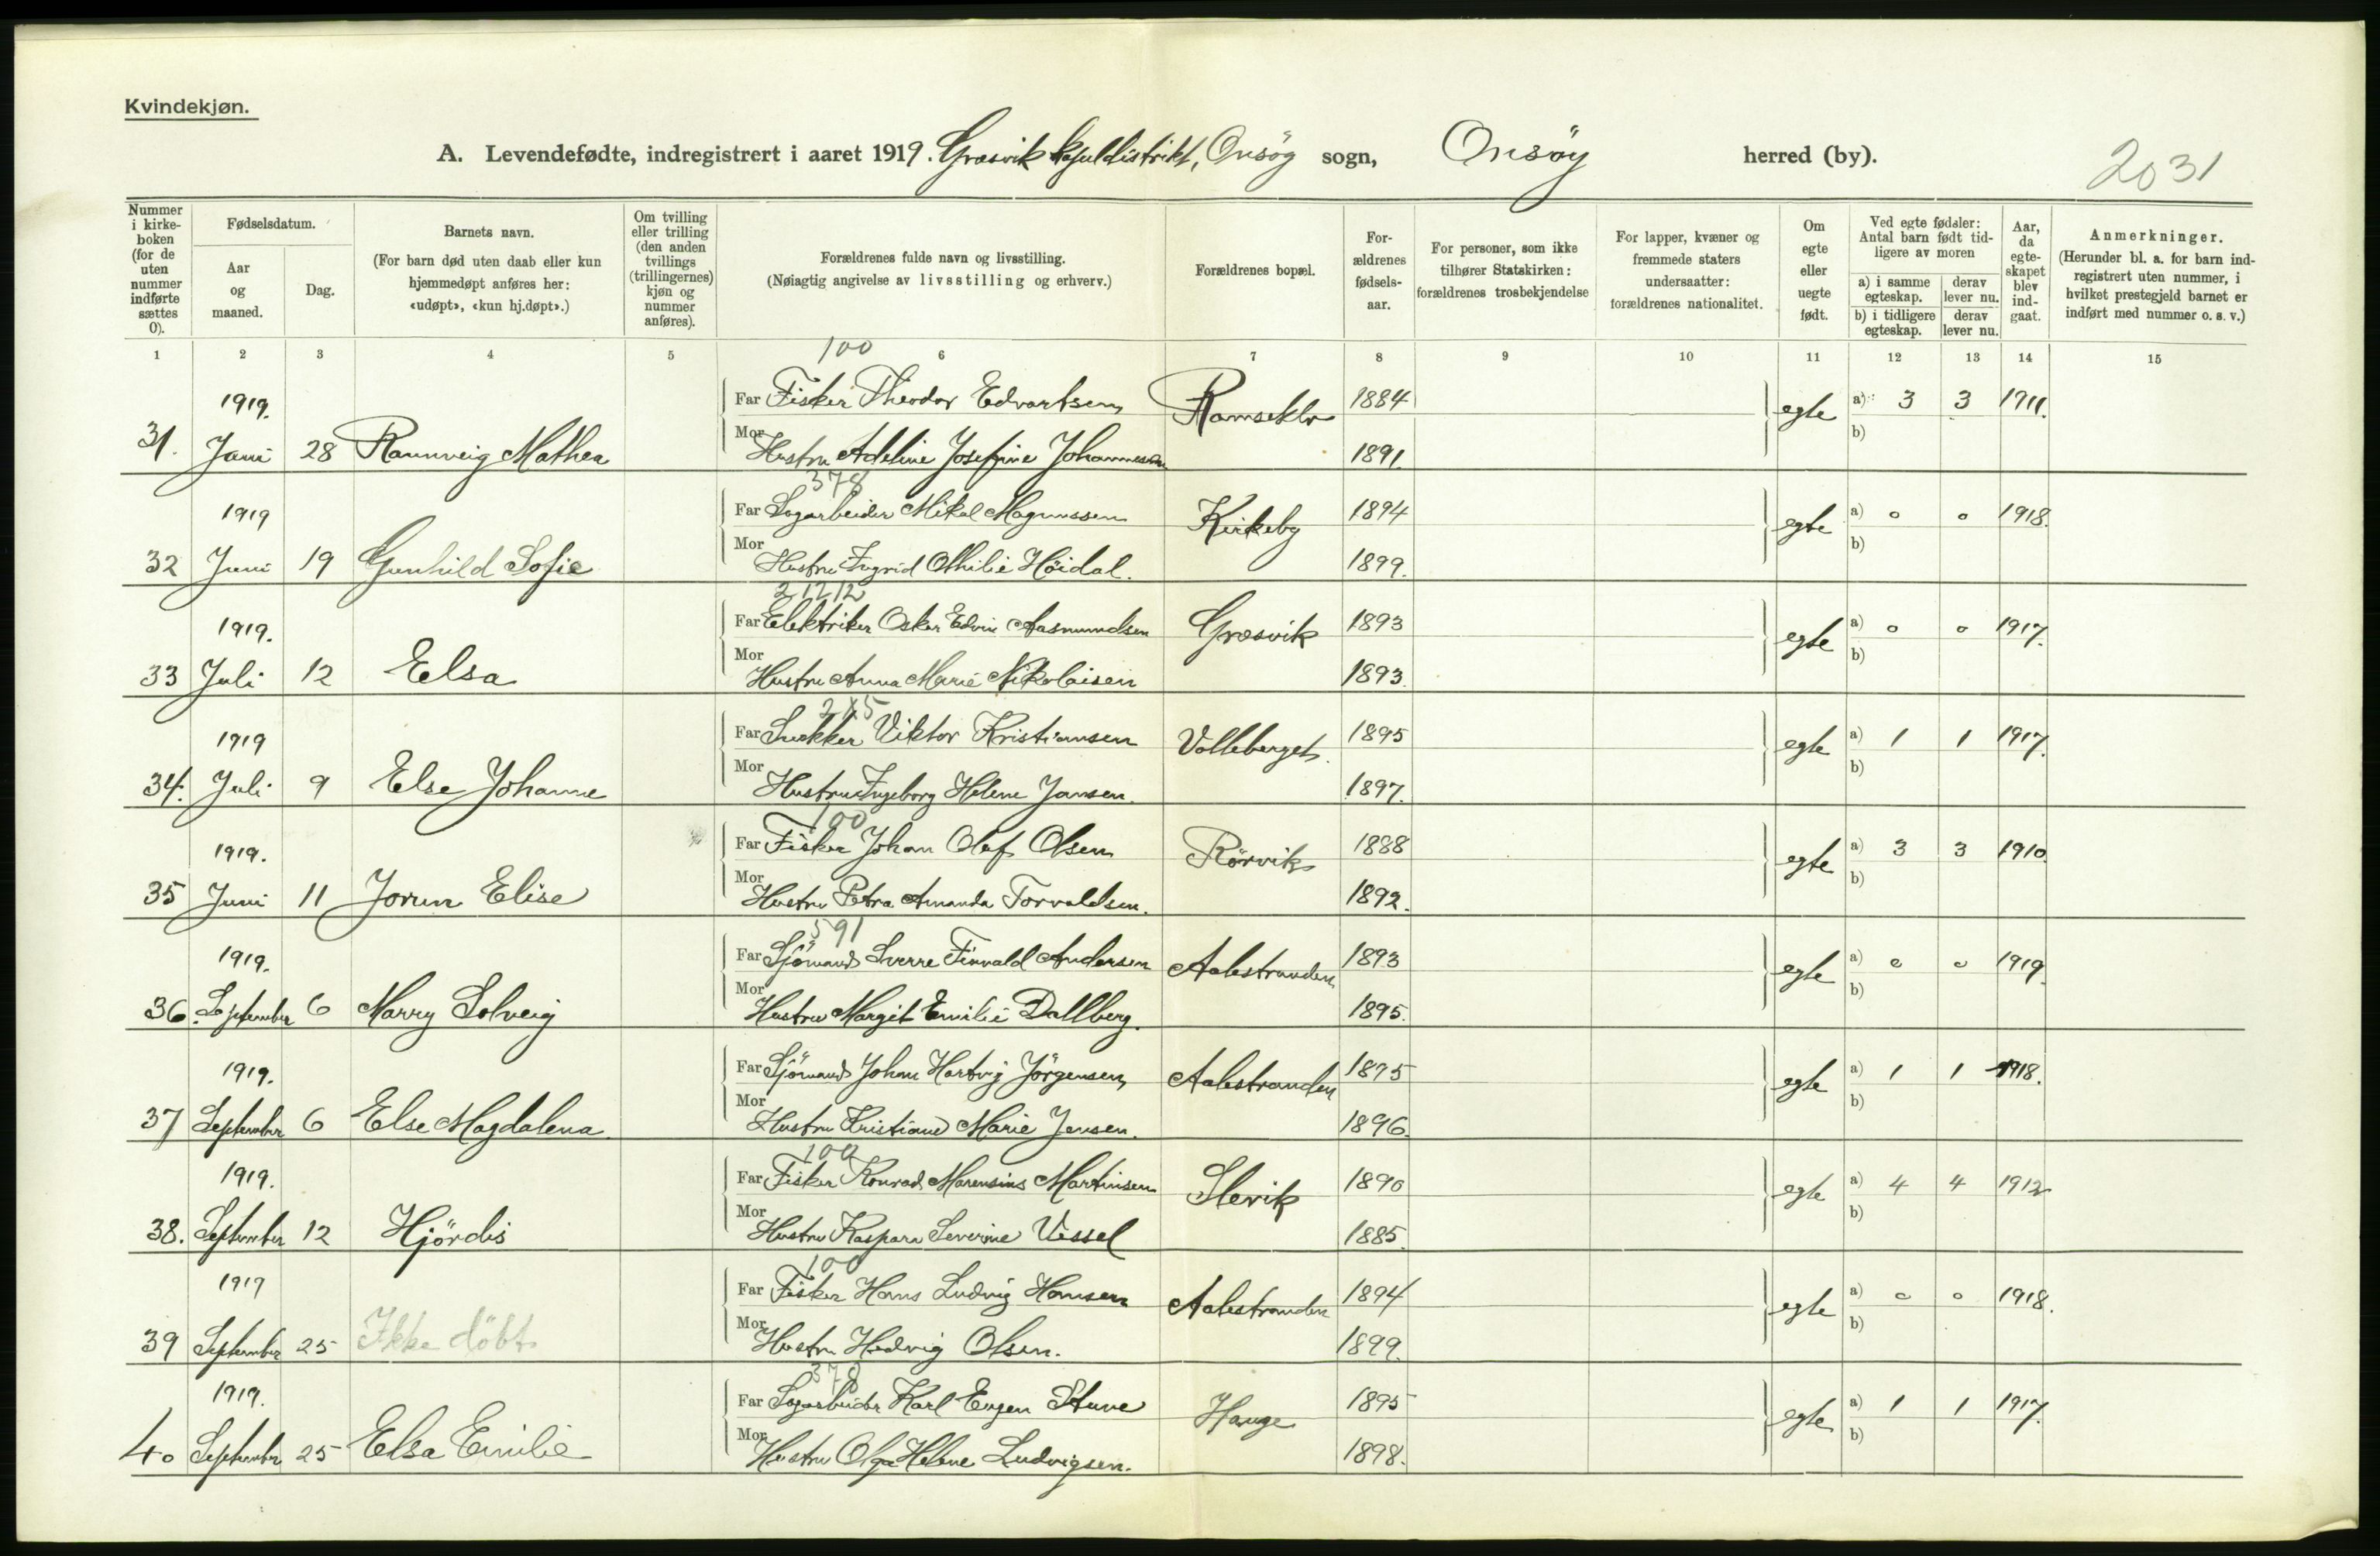 Kvindekjøn.
A. Levendefødte, indregistrert i aaret 1919. Græsvik skoledistrikt, Onsöy sogn, Onsöy herred (by).
2031
Nummer i kirkeboken (for de uten nummer indførte sættes 0).
Fødselsdatum.
Aar og maaned.
Dag.
Barnets navn.
(For barn død uten daab eller kun hjemmedøpt anføres her: «udøpt», «kun hj.døpt».)
Om tvilling eller trilling (den anden tvillings (trillingernes) kjøn og nummer anføres).
Forældrenes fulde navn og livsstilling.
(Nøiagtig angivelse av livsstilling og erhverv.)
Forældrenes bopæl.
Forældrenes fødselsaar.
For personer, som ikke tilhører Statskirken: forældrenes trosbekjendelse
For lapper, kvæner og fremmede staters undersaatter: forældrenes nationalitet.
Om egte eller uegte født.
Ved egte fødsler: Antal barn født tidligere av moren
a) i samme egteskap. derav lever nu.
b) i tidligere egteskap. derav lever nu.
Aar, da egteskapet blev indgaat.
Anmerkninger.
(Herunder bl. a. for barn indregistrert uten nummer, i hvilket prestegjeld barnet er indført med nummer o. s. v.)
1 2 3 4 5 6 7 8 9 10 11 12 13 14 15
100
1919. Far Fisker Theodor Edvartsen Ramseklo 1884 egte a) 3 3 1911.
31. Juni 28 Rannveig Mathea Mor Hustru Adeline Josefine Johannesen 1891. b)
378
1919 Far Sagarbeider Mikal Magnussen Kirkeby 1894 egte a) 0 0 1918.
32 Juni 19 Gunhild Sofie Mor Hustru Ingrid Othilie Höidal. 1899. b)
21212
1919. Far Elektriker Oskar Edvin Aasmundsen Græsvik 1893 egte a) 0 0 1917.
33 Juli 12 Elsa Mor Hustru Anna Marie Nikolaisen 1893. b)
215
1919 Far Snekker Viktor Kristiansen Volleberget. 1895 egte a) 1 1 1917.
34. Juli 9 Else Johanne Mor Hustru Ingeborg Helene Jansen. 1897. b)
100
1919. Far Fisker Johan Olaf Olsen Rörvik 1888 egte a) 3 3 1910
35 Juni 11 Jorun Elise Mor Hustru Petra Amanda Torvaldsen. 1892. b)
591
1919. Far Sjömand Sverre Finvald Andersen Aalestranden 1893 egte a) 0 0 1919
36. September 6 Marry Solveig Mor Hustru Margit Emilie Dallberg. 1895. b)
1919. Far Sjömand Johan Hartvig Jörgensen Aalestranden 1895 egte a) 1 1 1918.
37 September 6 Else Magdalena. Mor Hustru Kristiane Marie Jensen. 1896. b)
100
1919. Far Fisker Konrad Marensius Martinsen Slevik 1890 egte a) 4 4 1912
38. September 12 Hjördis Mor Hustru Kaspara Severine Vessel 1885. b)
100
1919 Far Fisker Hans Ludvig Hansen Aalestranden 1894 egte a) 0 0 1918.
39 September 25 Ikke döbt Mor Hustru Hedvig Olsen. 1899. b)
378
1919. Far Sagarbeider Karl Eugen Hauge 1895 egte a) 1 1 1917.
40 September 25 Elsa Emilie Mor Hustru Olga Helene Ludvigsen. 1898. b)